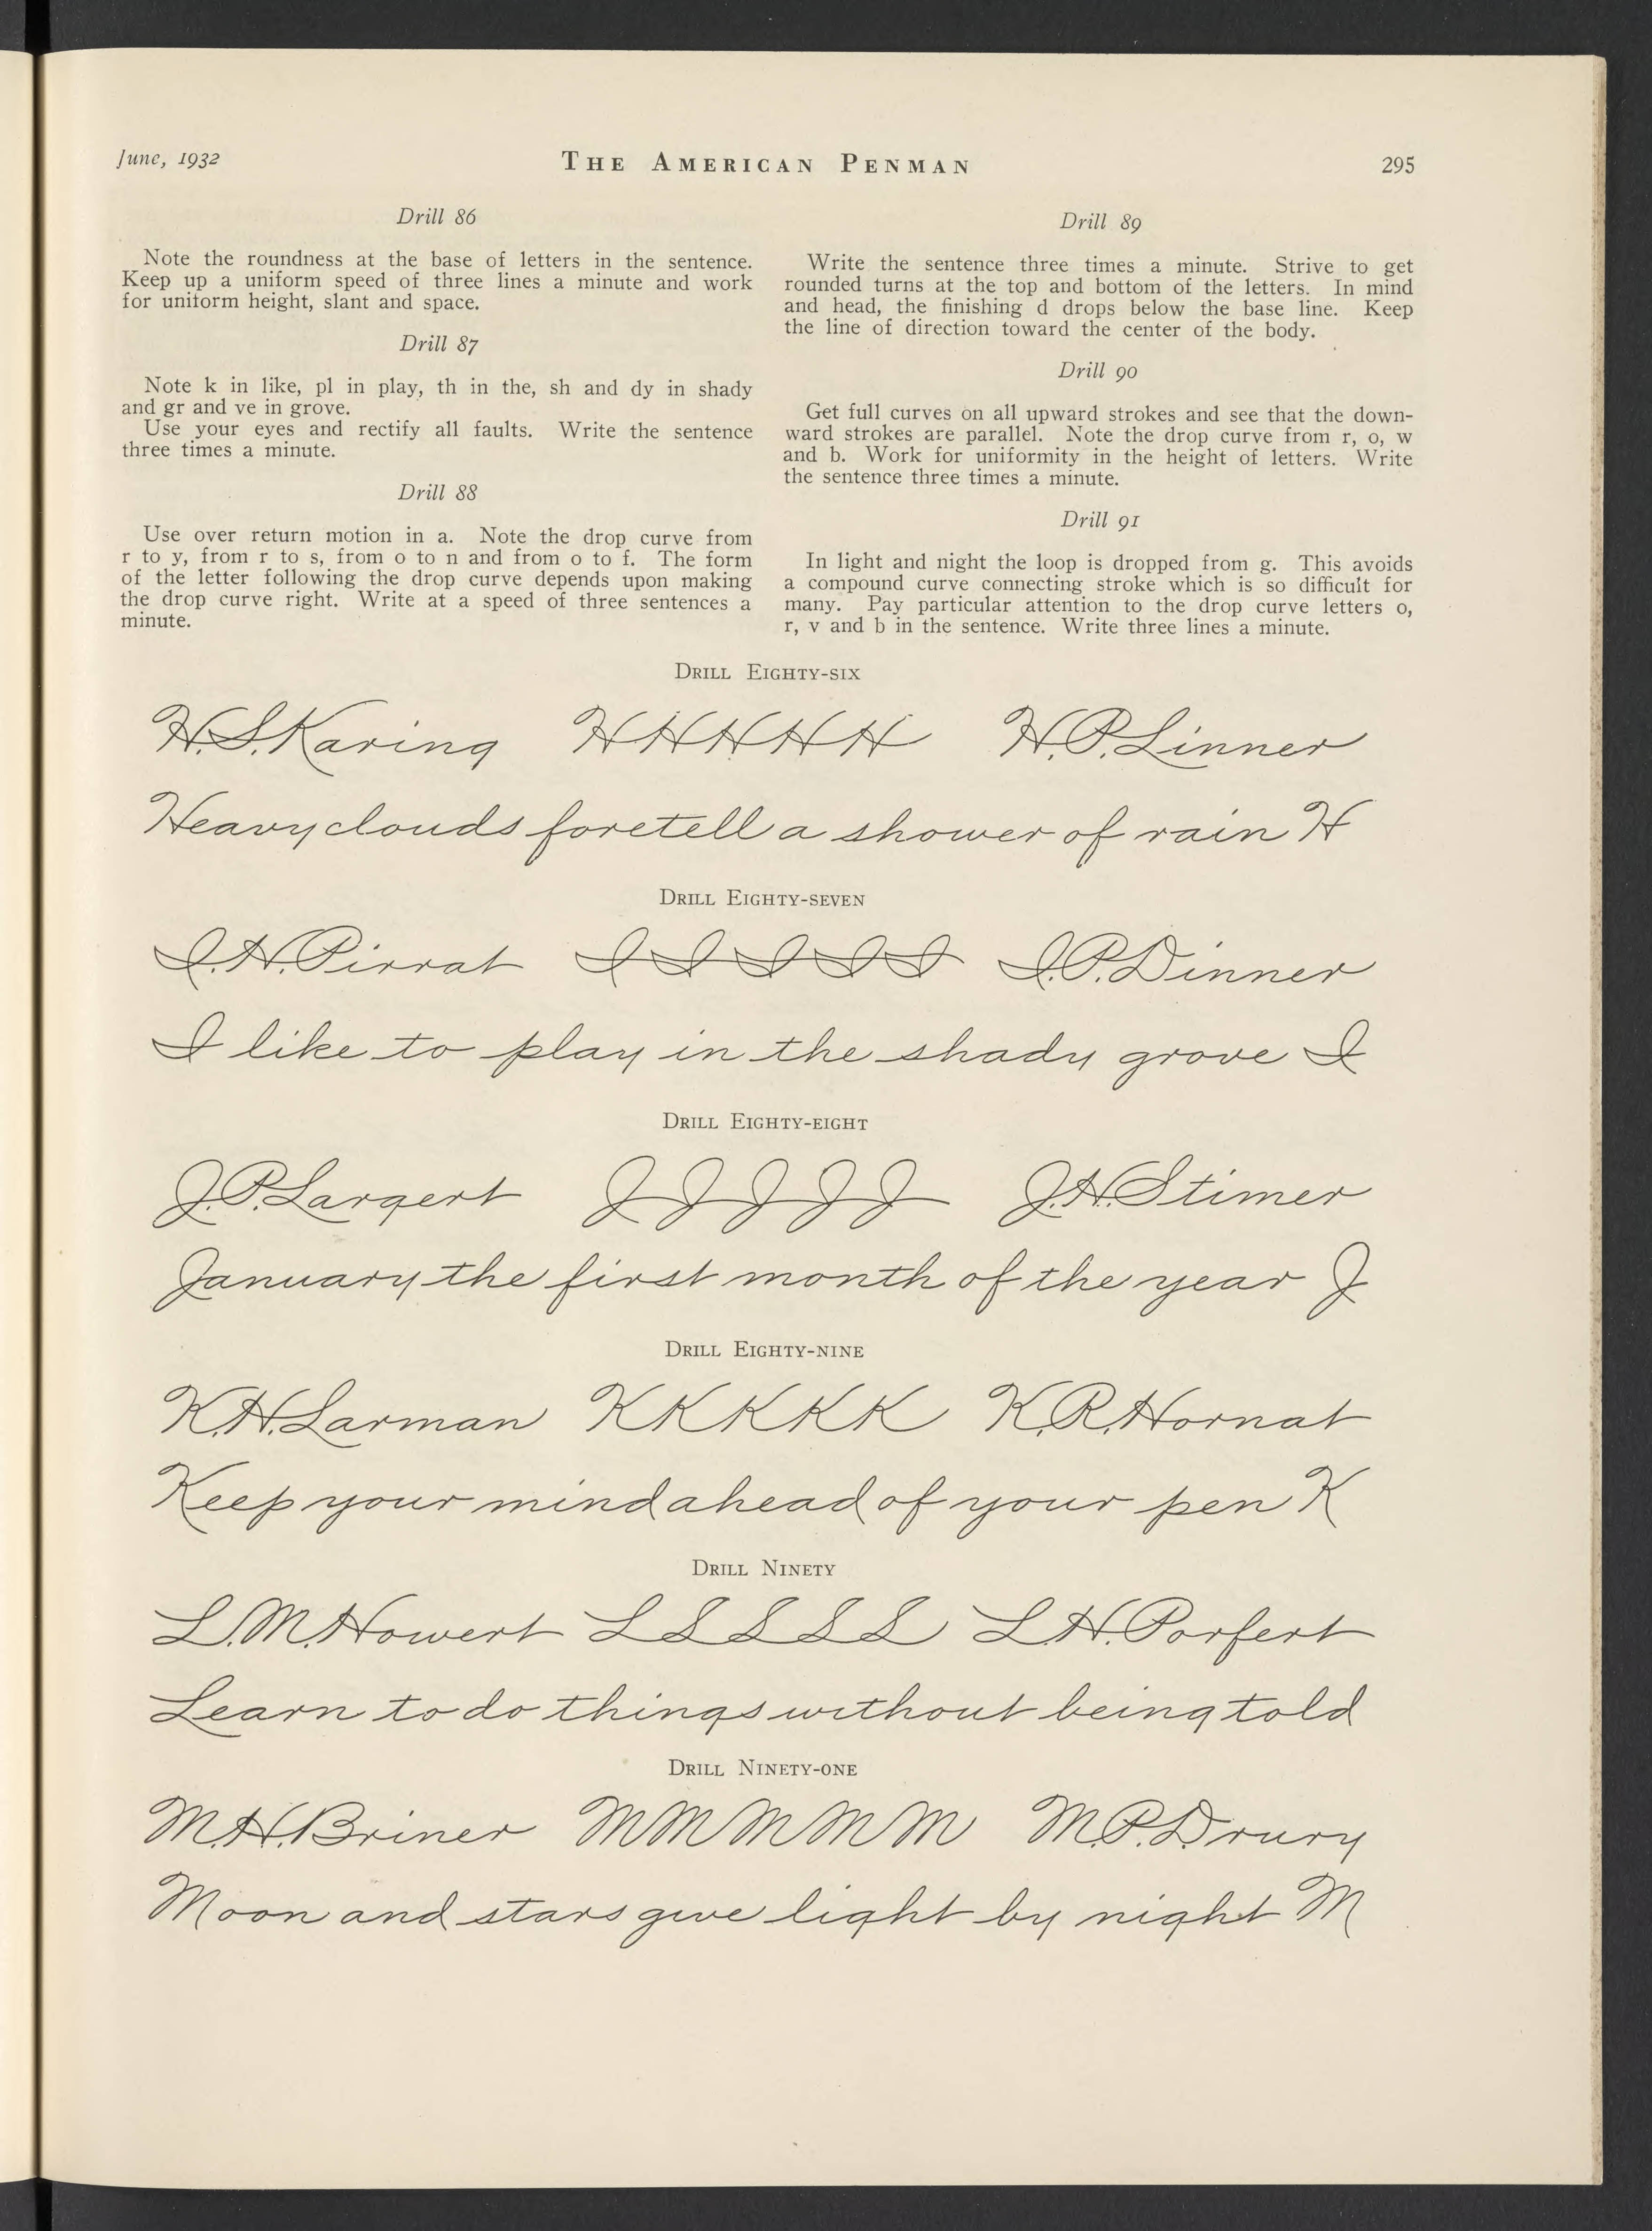 June, 1932
THE AMERICAN PENMAN
295
Drill 86
Note the roundness at the base of letters in the sentence.
Keep up a uniform speed of three lines a minute and work
for uniform height, slant and space.
Drill 87
Note k in like, pl in play, th in the, sh and dy in shady
and gr and ve in grove.
Use your eyes and rectify all faults. Write the sentence
three times a minute.
Drill 88
Use over return motion in a. Note the drop curve from
r to y, from r to s, from o to n and from o to f. The form
of the letter following the drop curve depends upon making
the drop curve right. Write at a speed of three sentences a
minute.
Drill 89
Write the sentence three times a minute. Strive to get
rounded turns at the top and bottom of the letters. In mind
and head, the finishing d drops below the base line. Keep
the line of direction toward the center of the body.
Drill 90
Get full curves on all upward strokes and see that the down-
ward strokes are parallel. Note the drop curve from r, o, w
and b. Work for uniformity in the height of letters. Write
the sentence three times a minute.
Drill 91
In light and night the loop is dropped from g. This avoids
a compound curve connecting stroke which is so difficult for
many. Pay particular attention to the drop curve letters o,
r, v and b in the sentence. Write three lines a minute.
DRILL EIGHTY-SIX
H. S. Karing H H H H H H. P. Linner
Heavy clouds foretell a shower of rain H
DRILL EIGHTY-SEVEN
I. H. Pirrat I I I I I I. P. Dinner
I like to play in the shady grove I
DRILL EIGHTY-EIGHT
J. P. Largert J J J J J J. H. Stimer
January the first month of the year J
DRILL EIGHTY-NINE
K. H. Larman K K K K K K. R. Hornat
Keep your mind ahead of your pen K
DRILL NINETY
L. M. Howert L L L L L L. H. Porfert
Learn to do things without being told
DRILL NINETY-ONE
M. H. Briner M M M M M M. P. Drury
Moon and stars give light by night M